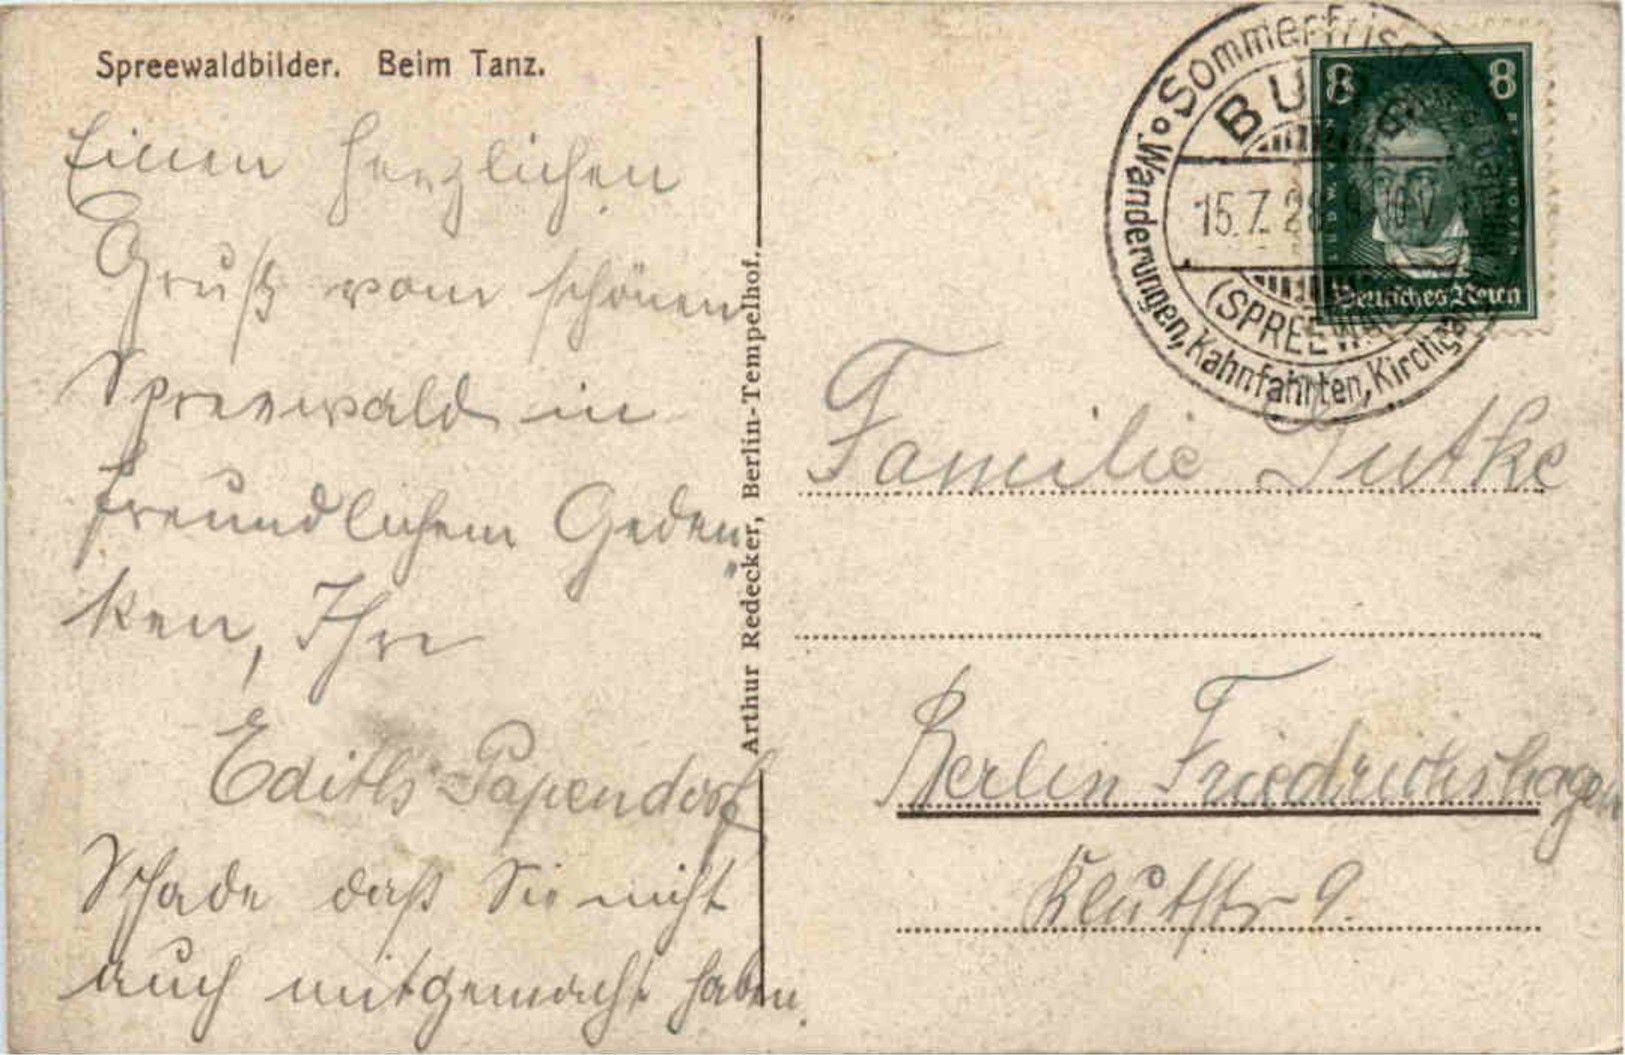 Spreewaldbilder. Beim Tanz.
Einen herzlichen
Gruß vom schönen
Spreewald in
freundlichem Geden„
ken, Ihre
Edith Papendorf
Schade daß Sie nicht
auch mitgemacht haben.
Arthur Redecker, Berlin-Tempelhof.
Sommerfrische
BURG
15.7.28
(SPREEWALD)
Wanderungen, Kahnfahrten, Kirchgang
8 8
Deutsches Reich
Familie
Berlin Friedrichshagen
9.